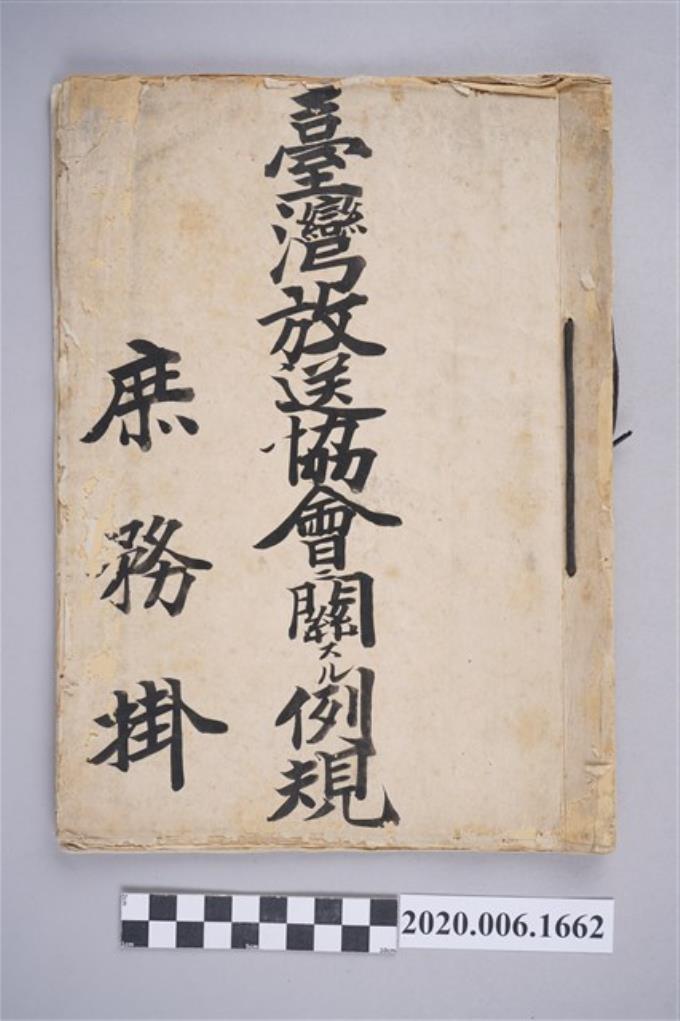 臺灣放送協會ニ關スル例規
庶務掛
2020.006.1662